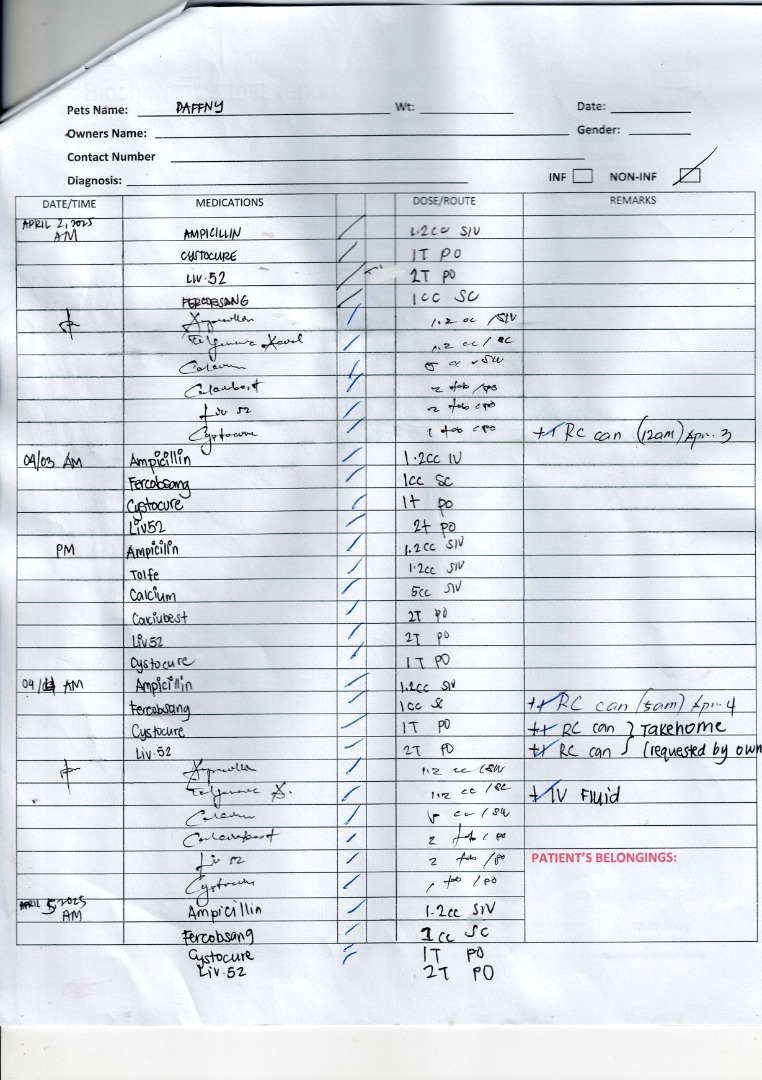 Pets Name: DAFFNY Wt: Date:
Owners Name: Gender:
Contact Number
Diagnosis: INF NON-INF
DATE/TIME MEDICATIONS DOSE/ROUTE REMARKS
APRIL 2, 2025 AM AMPICILLIN 1.2cc SIV
CYSTOCURE 1T PO
LIV.52 2T PO
FERCOBSANG 1cc SC
1.2 cc /SIV
1.2 cc / SC
Calcium 5 cc SIV
2 tab /po
Liv 52 2 tab /po
Cystocure 1 tab /po ++ RC can (12am) Apr. 3
04/03 AM Ampicillin 1.2cc IV
Fercobsang 1cc SC
Cystocure 1t po
Liv52 2t po
PM Ampicilin 1.2cc SIV
Tolfe 1.2cc SIV
Calcium 5cc SIV
Calciubest 2T PO
Liv.52 2T PO
Cystocure 1T PO
04/ AM Ampicillin 1.2cc SIV
Fercobsang 1cc SC ++ RC can (5am) Apr. 4
Cystocure 1T PO ++ RC can } Takehome
Liv.52 2T PO ++ RC can (requested by own
1.2 cc /SIV
1.2 cc /SC + IV Fluid
Calcium cc /SIV
2 tab /po
Liv 52 2 tab /po PATIENT'S BELONGINGS:
Cystocure 1 tab /po
APRIL 5, 2025 AM Ampicillin 1.2cc SIV
Fercobsang 1cc SC
Cystocure 1T PO
Liv.52 2T PO